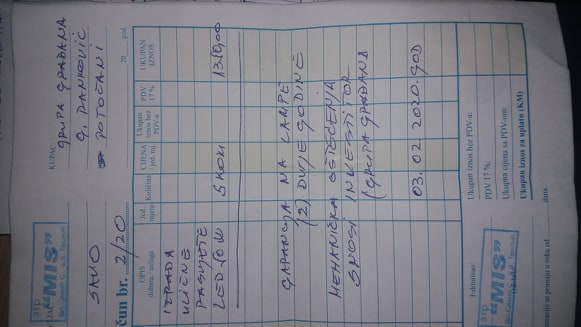 KUPAC:
GRUPA GRAĐANA
G. RANKOVIĆ
POTOČANI
"MIS"
SAVO
čun br. 2/20
20 god.
OPIS
dobara / usluga
Jed.
mjere
Količina
CIJENA
/ jed. mj.
Ukupan
iznos bez
PDV-a
PDV
17 %
UKUPAN
IZNOS
IZRADA
ULIČNE
RASVJETE
LED
5 KOM
GARANCIJA NA LAMPE
(2) DVIJE GODINE
MEHANIČKA OŠTEĆENJA
SNOSI INVESTITOR
(GRUPA GRAĐANA)
03. 02. 2020. GOD
Ukupan iznos bez PDV-a:
PDV 17 %:
Ukupna cijena sa PDV-om:
Ukupan iznos za uplatu (KM)
Fakturisao:
"MIS"
se primaju u roku od
dana.